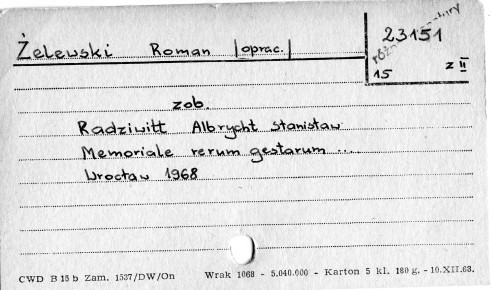 Żelewski Roman [oprac.]
23151
15 z II
zob.
Radziwiłł Albrycht Stanisław
Memoriale rerum gestarum ...
Wrocław 1968
CWD B 15 b Zam. 1537/DW/On Wrak 1068 - 5.040.000 - Karton 5 kl. 180 g. - 10.XII.68.